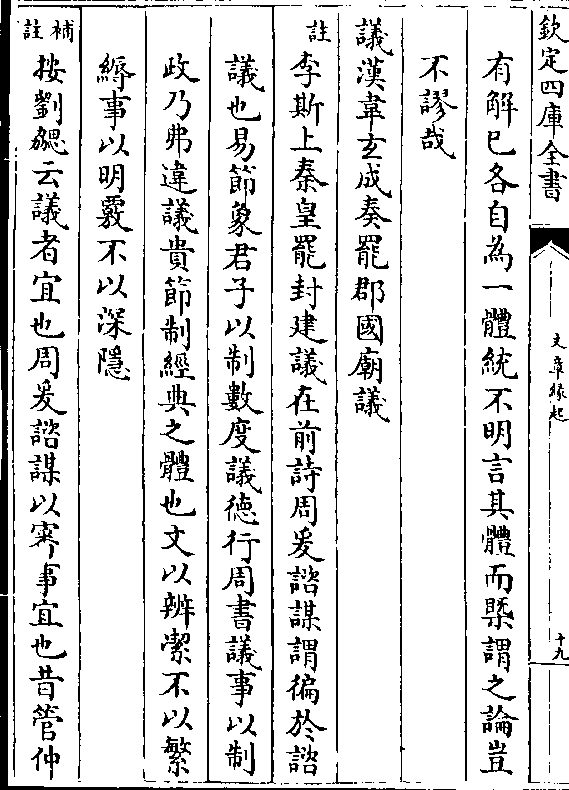 欽定四庫全書
文章緣起
十九
有解已各自為一體統不明言其體而槩謂之論豈
不謬哉
議漢韋玄成奏罷郡國廟議
註李斯上秦皇罷封建議在前詩周爰諮謀謂徧於諮
議也易節象君子以制數度議徳行周書議事以制
政乃弗違議貴節制經典之體也文以辨潔不以繁
縟事以明覈不以深隱
補註按劉勰云議者宜也周爰諮謀以審事宜也昔管仲